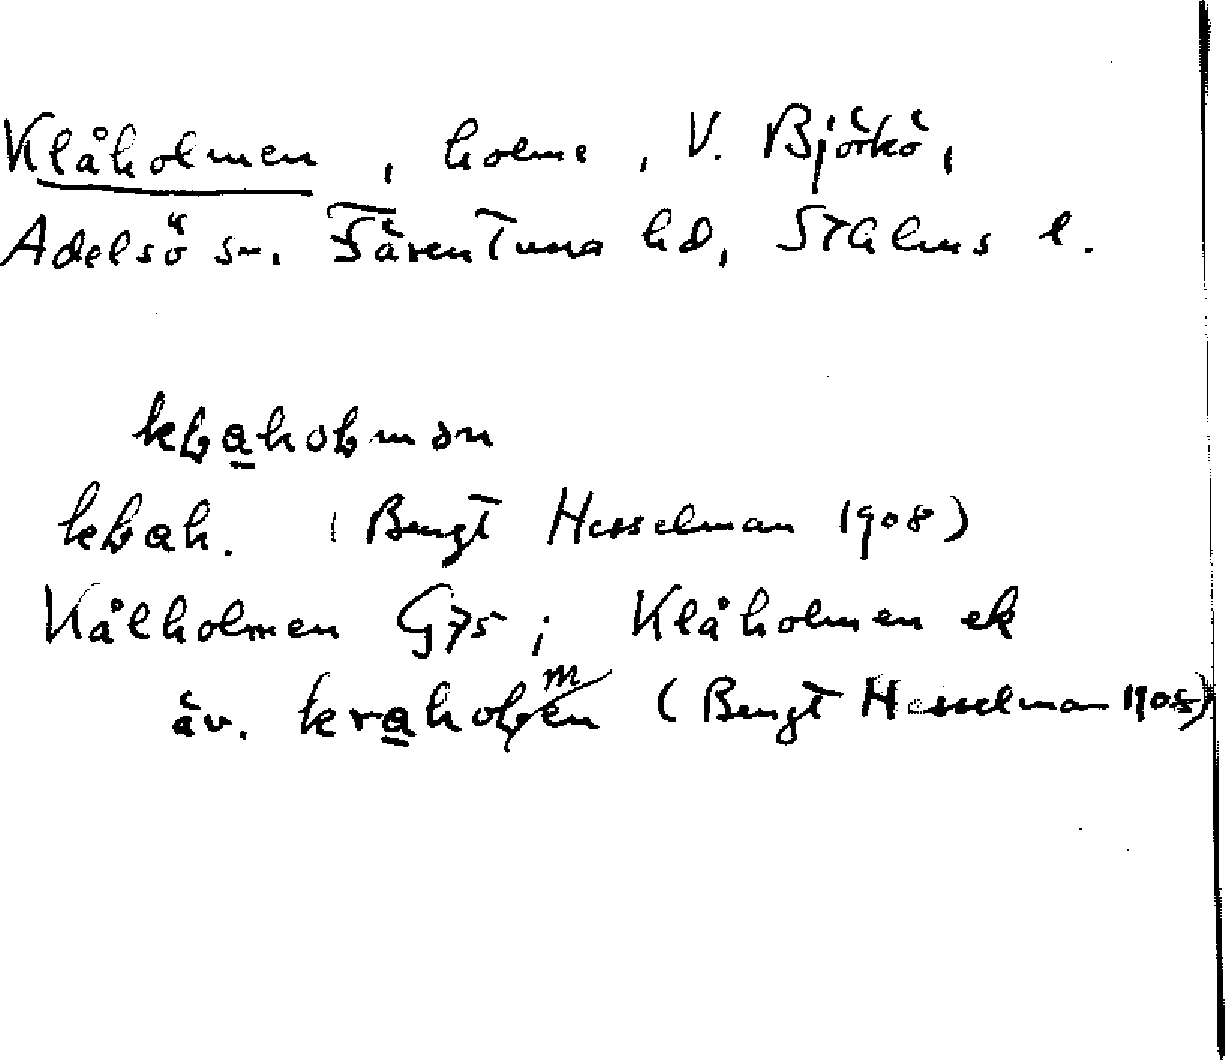 Klåholmen, holme, V. Björkö,
Adelsö sn. Färentuna hd, Sthlms l.
kɫa̲hoɫmən
kɫah. (Bengt Hesselman 1908)
Kålholmen G75; Klåholmen ek
äv. kra̲hoɫmen (Bengt Hesselman 1905)